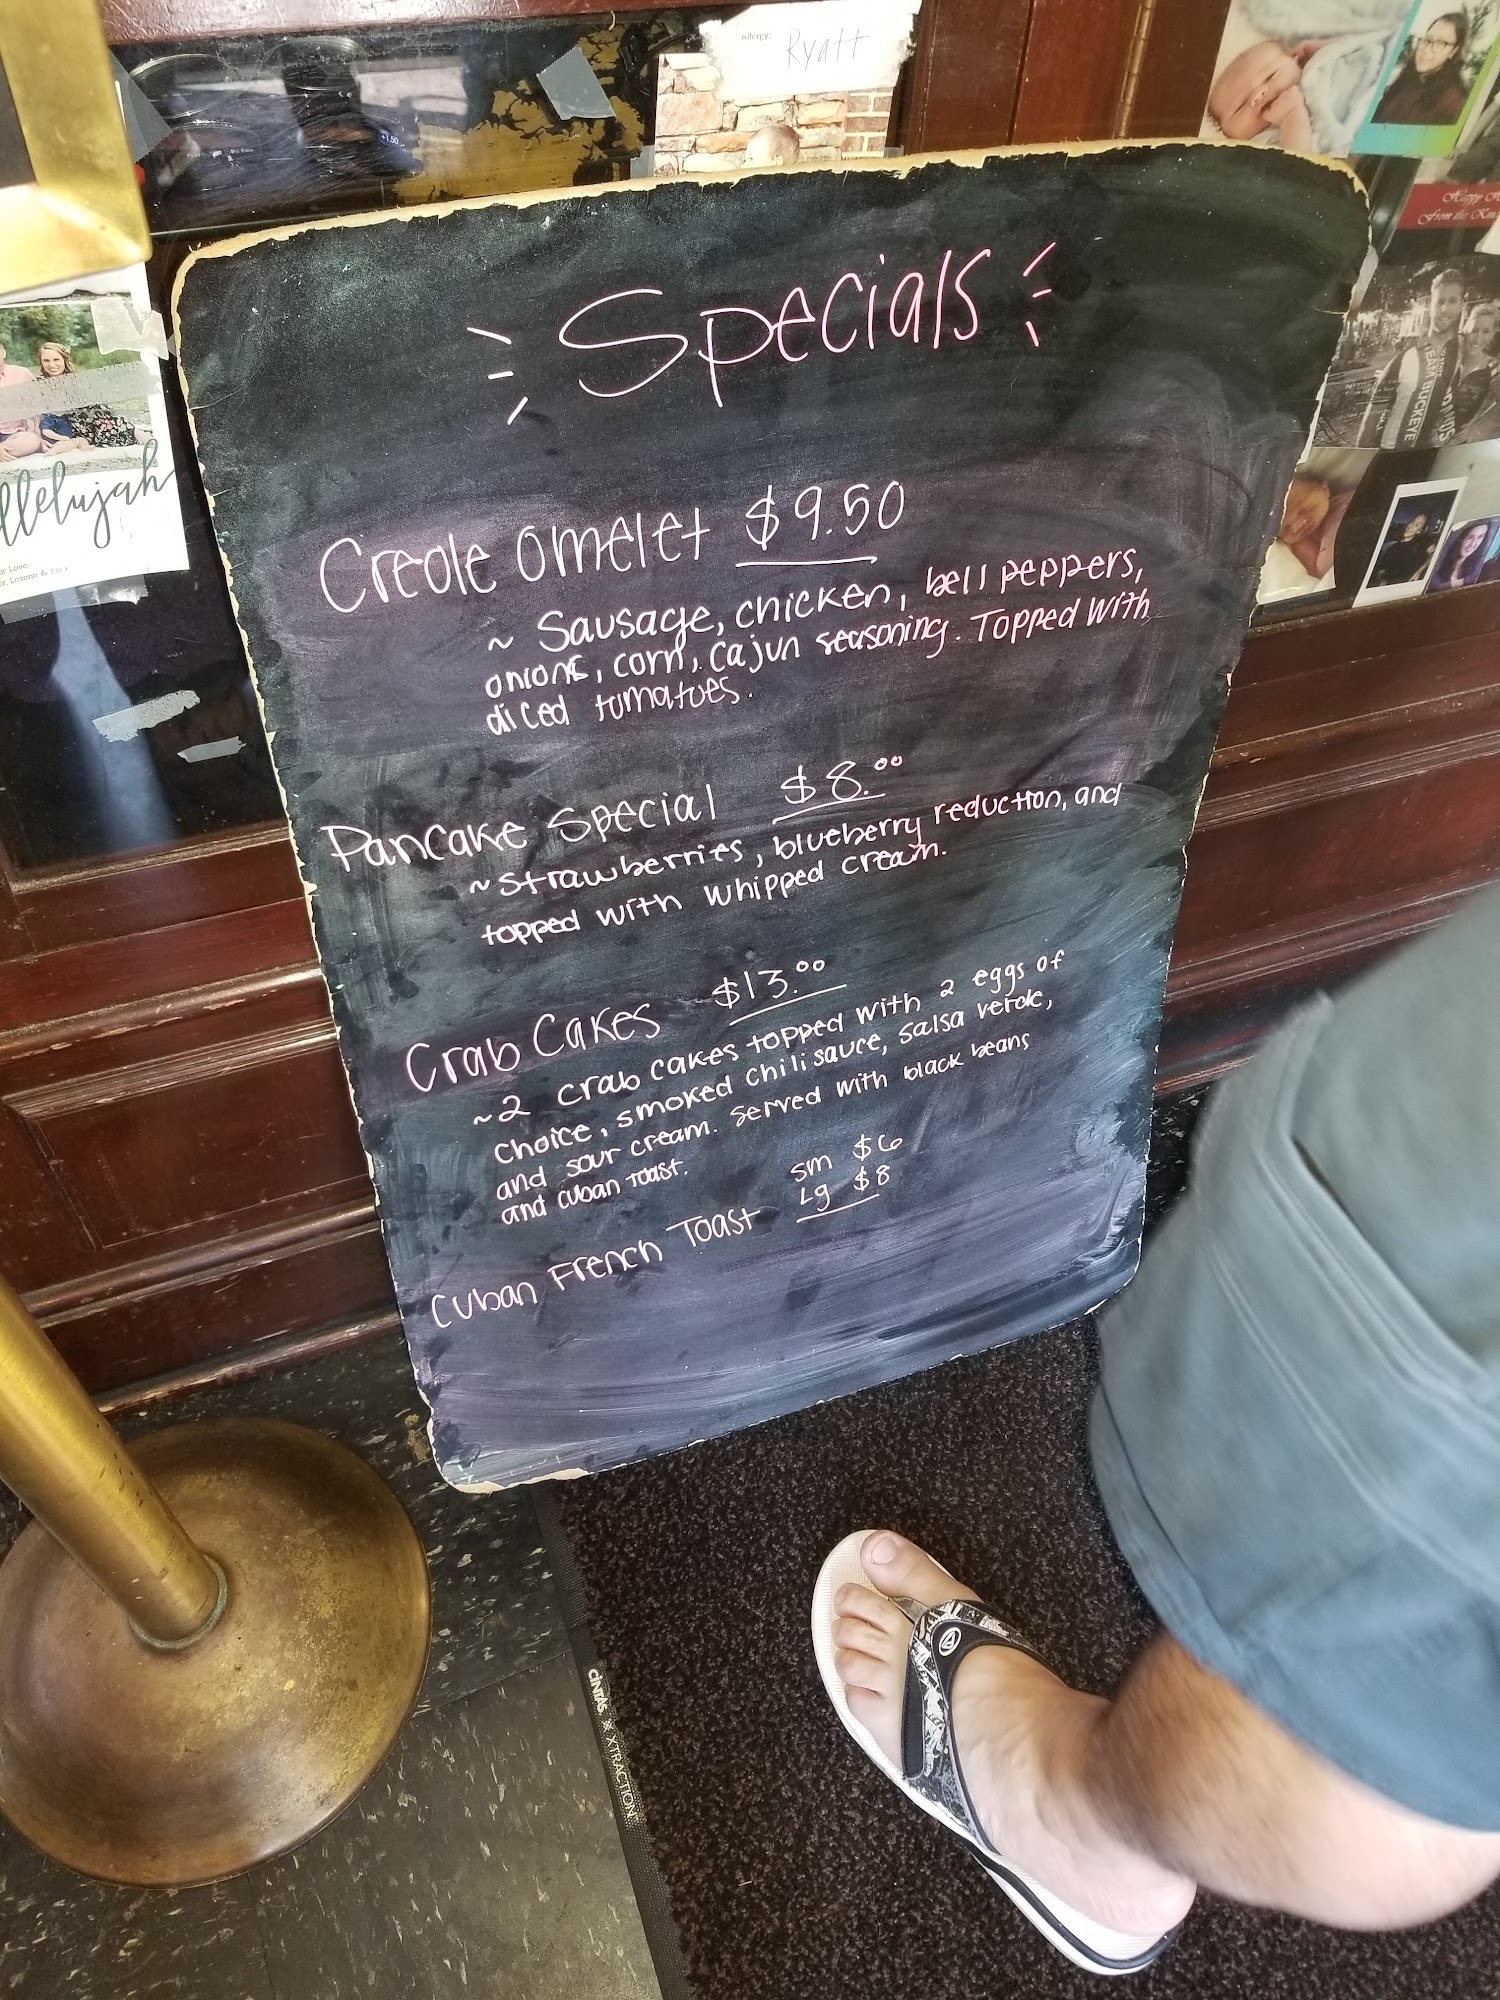 Allergy:
Ryatt
+1.50
Specials
Creole Omelet $9.50
~ Sausage, chicken, bell peppers,
onions, corn, cajun seasoning. Topped with
diced tomatoes.
Pancake Special $8.00
~ Strawberries, blueberry reduction, and
topped with whipped cream.
Crab Cakes $13.00
~2 crab cakes topped with 2 eggs of
choice, smoked chili sauce, salsa verde,
and sour cream. Served with black beans
and cuban toast.
Cuban French Toast sm $6
Lg $8
llelujah
ur Love
Leanne &
Happy
from the
BUCKEYE
CINTAS X XTRACTION